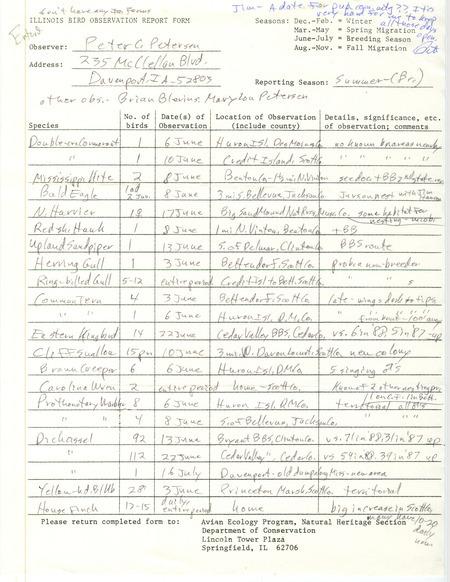 don't have any Ia. forms
Jim- A date for pub.
ILLINOIS BIRD OBSERVATION REPORT FORM
Seasons: Dec.-Feb. = Winter
Mar.-May = Spring Migration
Observer: Peter C. Petersen
June-July = Breeding Season
Aug.-Nov. = Fall Migration
Address: 235 McClellan Blvd.
Davenport, IA - 52803
Reporting Season: Summer-(Br.)
other obs.- Brian Blevins, Marylou Petersen
No. of Date(s) of Location of Observation Details, significance, etc.
Species birds Observation (include county) of observation; comments
Double-cr. Cormorant 1 6 June Huron Isl. Des Moines Co. no known br. areas nearby
" 1 10 June Credit Island, Scott Co. " " " "
Mississippi Kite 2 8 June Benton Co.- N. Vinton see doc + BB
Bald Eagle 1 ad 2 Jun. 8 June 3 mi S. Bellevue, Jackson Co.
N. Harrier 18 17 June Big Sand Mound Nat. Res. Musc. Co. some habitat for nesting
Red-sh. Hawk 1 8 June 1 mi N. Vinton, Benton Co. + BB
Upland Sandpiper 1 13 June S. of Delmar, Clinton Co. BBS route
Herring Gull 1 3 June Bettendorf, Scott Co. prob. a non-breeder
Ring-billed Gull 5-12 entire period Credit Isl to Bett. Scott Co. " "
Common Tern 4 3 June Bettendorf, Scott Co. late - wings dark to tips
" 1 6 June Huron Isl., D.M. Co. "
Eastern Kingbird 14 22 June Cedar Valley BBS, Cedar Co. vs. 6 in '88, 5 in '87 - up
Cliff Swallow 15 prs 10 June 3 mi. W. Davenport, Scott Co. new colony
Brown Creeper 6 6 June Huron Isl. DM Co 5 singing ♂'s
Carolina Wren 2 entire period home - Scott Co. Know of 2 other nesting prs.
Prothonotary Warbler 8 6 June Huron Isl. D.M. Co. territorial all ♂'s
" 4 8 June S. of Bellevue, Jackson Co. "
Dickcissel 92 13 June Bryant BBS, Clinton Co. vs. 71 in 88, 31 in '87 up
" 112 22 June Cedar Valley", Cedar Co. vs 59 in 88, 39 in '87 up
" 1 16 July Davenport - old dump along Miss - new area
Yellow-hd. Blkb 28 3 June Princeton Marsh, Scott Co. territorial
House Finch 12-15 daily/entire period home big increase in Scott Co.
Please return completed form to: Avian Ecology Program, Natural Heritage Section
Department of Conservation
Lincoln Tower Plaza
Springfield, IL 62706